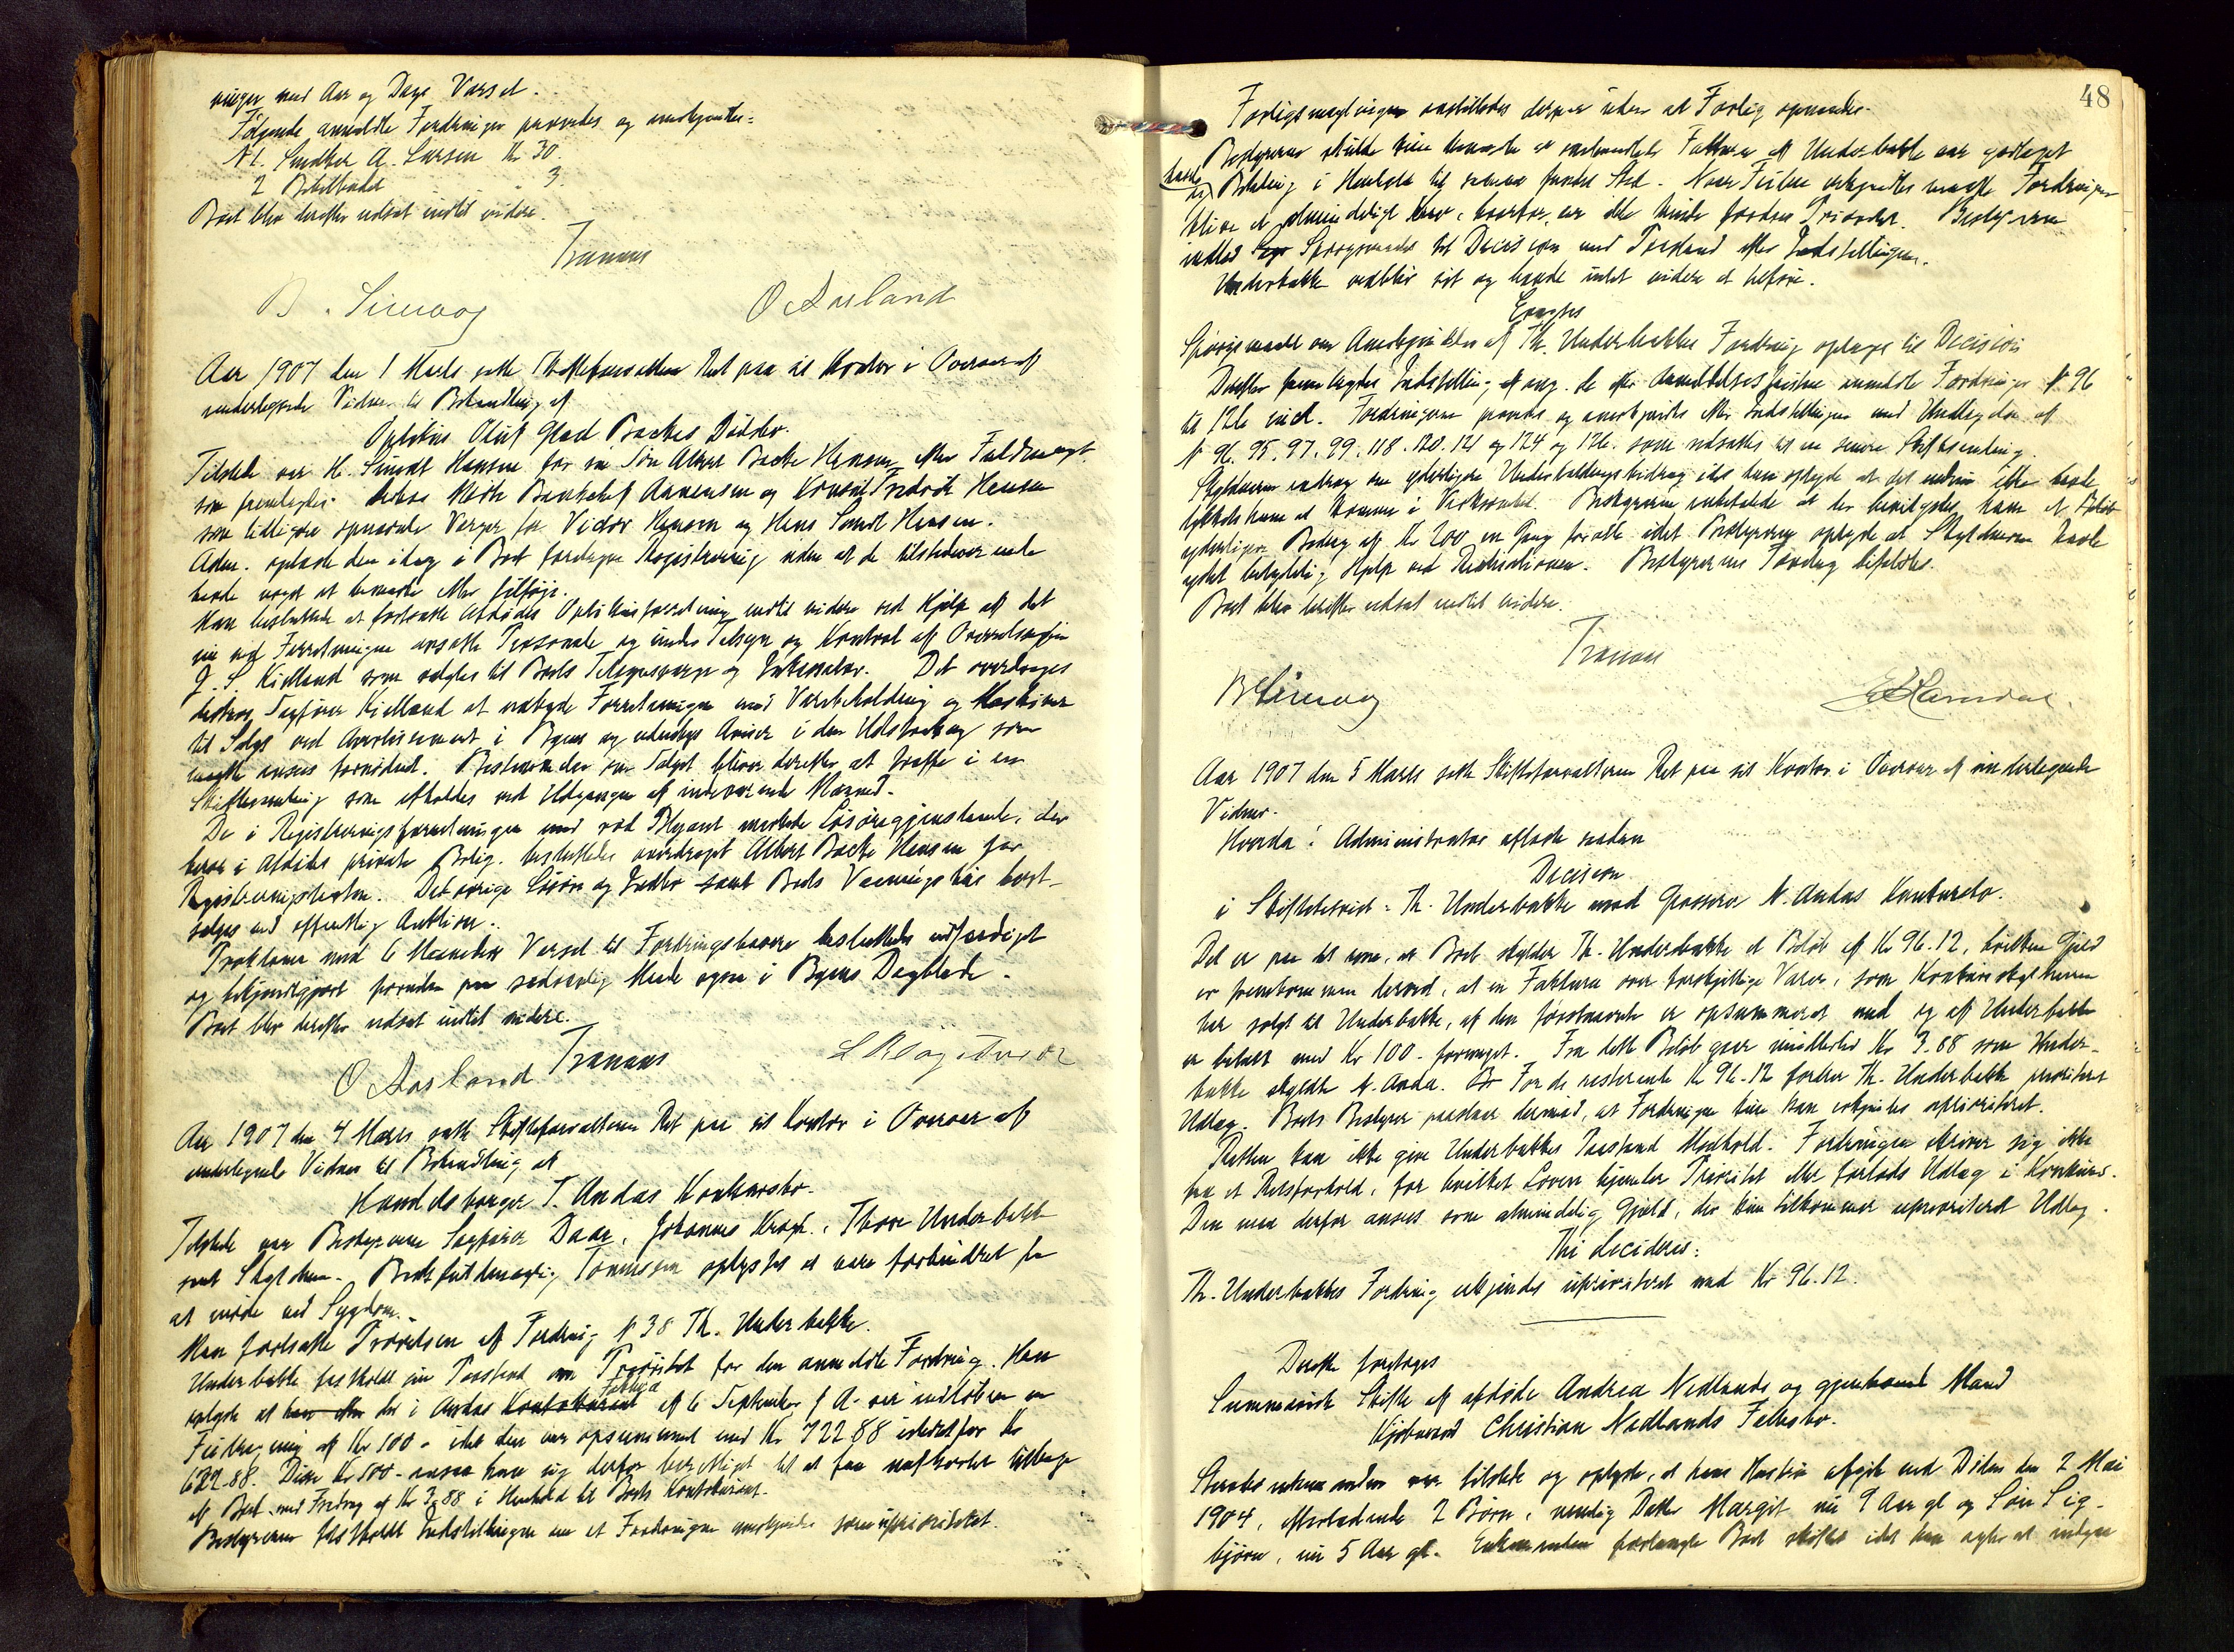 ninger med Aar og Dags Varsel.
Følgende anmeldte Fordringer prøvedes og anerkjendtes:
N 1. Snedker A. Larsen Kr 30.
2 3.
Boet blev derefter udsat indtil videre.
Tranaas
B. Sirevaag O Aasland
Aar 1907 den 1 Marts satte Skifteforvalteren Ret paa sit Kontor i Overvær af
underlegnede Vidner til Behandling af
Optikus Oluf Glad Backes Dødsbo.
Tilstede var H. Smidt Hansen for sin Søn Albert Backe Hansen efter Fuldmagt
som fremlagdes. Desuden mødte Bankchef Aanensen og Konsul Fredrik Hansen
som tidligere opnævnte Verger for Victor Hansen og Hans Smidt Hansen.
Adm. oplæste den idag i Boet foretagne Registrering uden at de tilstedeværende
havde noget at bemærke eller tilføje.
Man besluttede at fortsætte Afdødes Optikusforretning indtil videre ved Hjælp af det
nu ved Forretningen ansatte Personale og under Tilsyn og Kontrol af Overretssagfører
J. S. Kielland som valgtes til Boets Tilsynsverge og Inkassator. Det overdroges
desuden Sagfører Kielland at udbyde Forretningen med Varebeholdning og Maskiner
til Salgs ved Avertissement i Byens og udenbys Aviser i den Udstrækning som
maatte ansees fornødent. Bestemmelse om Salget bliver derefter at træffe i en
Skiftesamling som afholdes ved Udgangen af indeværende Maaned.
De i Registreringsforretningen med rød Blyant mærkede Løsøregjenstande, der
beror i Afdødes private Bolig, besluttedes overdraget Albert Backe Hansen for
Registreringstaxten. Det øvrige Løsøre og Indbo samt Boets Vaaningshus bort-
sælges ved offentlig Auktion.
Proklama med 6 Maaneders Varsel til Fordringshavere besluttedes udfærdiget
og bekjendtgjort foruden paa sædvanlig Maade ogsaa i Byens Dagblade.
Boet blev derefter udsat indtil videre.
O Aasland Tranaas
Aar 1907 den 4 Marts satte Skifteforvalteren Ret paa sit Kontor i Overvær af
underlegnede Vidner til Behandling af
Handelsborger T. Andas Konkursbo.
Tilstede var Bestyreren Sagfører Daae, Johannes Krage, Thore Underbakke
samt Skyldneren. Boets fuldmægtig Tønnessen oplystes at være forhindret fra
at møde ved Sygdom.
Man fortsatte Prøvelsen af Fordring N 38 Th. Underbakke.
Underbakke fastholdt sin Paastand om Prioritet for den anmeldte Fordring. Han
oplyste at der i Andas Faktura af 6 September f A. var indløben en
Feilregning af Kr 100 - idet den var opsummeret med Kr. 722.88 istedetfor Kr
622.88. Disse Kr 100- ansaa han sig derfor berettiget til at faa uafkortet tilbage
af Boet med Fradrag af Kr 3.88 i Henhold til Boets Kontokurant.
Bestyreren fastholdt Indstillingen om at Fordringen anerkjendes som uprioriteret.
48
Forligsmægling anstilledes derpaa uden at Forlig opnaaedes.
Bestyreren skulde kun bemærke at omhandlede Faktura af Underbakke var godtaget
og Betaling i Henhold til samme havde fundet Sted. Naar Feilen erkjendtes maatte Fordringen
blive et almindeligt Krav, hvorfor der ikke kunde fordres Prioritet. Bestyreren
indlod Spørgsmaalet til Decision med Paastand efter Indstillingen.
Underbakke vedblev sit og havde intet videre at tilføie.
Eragtes
Spørgsmaalet om Anerkjendelse af Th. Underbakkes Fordring optages til Decision
Derefter fremlagdes Indstilling ang. de efter Anmeldelsesfristen anmeldte Fordringer N 96
til 126 incl. Fordringerne prøvedes og anerkjendtes efter Indstillingen med Undtagelse af
N 96. 95. 97. 99. 118. 120. 121 og 124 og 126. som udsattes til en senere Skiftesamling.
Skyldneren androg om yderligere Underholdsbidrag idet han oplyste at det endnu ikke havde
lykkedes ham at komme i Virksomhed. Bestyreren anbefalede at der bevilgedes ham et
yderligere Bidrag af Kr 200 en Gang for alle idet Bestyreren oplyste at Skyldneren havde
ydet betydelig Hjælp ved Realisationen. Bestyrerens Forslag bifaldtes.
Boet blev derefter udsat indtil videre.
Tranaas
B Sirevaag
Aar 1907 den 5 Marts satte Skifteforvalteren Ret paa sit Kontor i Overvær af underlegnede
Vidner.
Hvorda: Administrator aflagde saadan
Decision
i Skiftetvist: Th. Underbakke mod Grosserer N. Andas Konkursbo.
Det er paa det rene, at Boet skylder Th. Underbakke et Beløb af Kr 96.12, hvilken Gjæld
er fremkommen derved, at en Faktura over forskjellige Varer, som Konkursskyldneren
har solgt til Underbakke, af den førstnævnte er opsummeret med og af Underbakke
er betalt med Kr 100- formeget. Fra dette Beløb gaar imidlertid Kr 3.88 som Under-
bakke skyldte N. Anda. For de resterende Kr 96.12 fordrer Th. Underbakke prioriteret
Udlæg. Boets Bestyrer paastaar dermod, at Fordringen kun kan erkjendes uprioriteret.
Retten kan ikke give Underbakkes Paastand Medhold. Fordringen skriver sig ikke
fra et Retsforhold, for hvilket Loven hjemler Prioritet eller forlods Udlæg i Konkurs.
Den maa derfor ansees som almindelig Gjæld, der kun tilkommer uprioriteret Udlæg.
Thi decideres:
Th. Underbakkes Fordring erkjendes uprioriteret med Kr 96.12.
Derefter foretoges
Summarisk Skifte af afdøde Andrea Nedlands og gjenlevende Mand
Kjøbmand Christian Nedlands Fællesbo.
Enkemanden var tilstede og oplyste, at hans Hustru afgik ved Døden den 2 Mai
1904, efterladende 2 Børn, nemlig Datter Margit nu 9 Aar gl og Søn Sig-
bjørn, nu 5 Aar gl. Enkemanden forlangte Boet skiftet idet han agter at indgaa